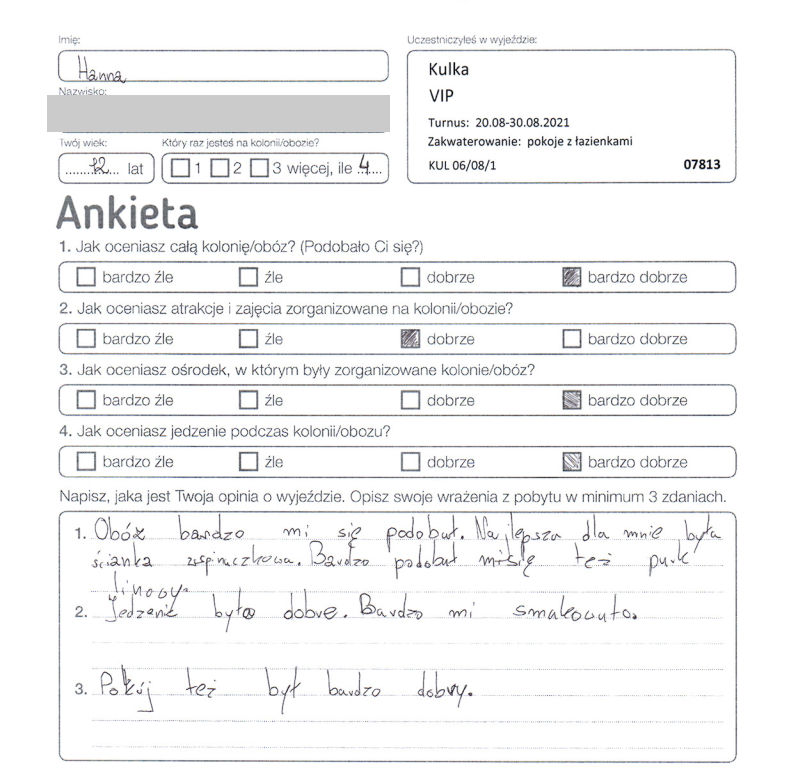 Imię:
Hanna
Nazwisko:
Uczestniczyłeś w wyjeździe:
Kulka
VIP
Turnus: 20.08-30.08.2021
Zakwaterowanie: pokoje z łazienkami
KUL 06/08/1 07813
Twój wiek: Który raz jesteś na kolonii/obozie?
12 lat 1 2 3 więcej, ile 4
Ankieta
1. Jak oceniasz całą kolonię/obóz? (Podobało Ci się?)
bardzo źle źle dobrze bardzo dobrze
2. Jak oceniasz atrakcje i zajęcia zorganizowane na kolonii/obozie?
bardzo źle źle dobrze bardzo dobrze
3. Jak oceniasz ośrodek, w którym były zorganizowane kolonie/obóz?
bardzo źle źle dobrze bardzo dobrze
4. Jak oceniasz jedzenie podczas kolonii/obozu?
bardzo źle źle dobrze bardzo dobrze
Napisz, jaka jest Twoja opinia o wyjeździe. Opisz swoje wrażenia z pobytu w minimum 3 zdaniach.
1. Obóz bardzo mi się podobał. Najlepsza dla mnie była
ścianka wspinaczkowa. Bardzo podobał mi się też park
linowy.
2. Jedzenie było dobre. Bardzo mi smakowało.
3. Pokój też był bardzo dobry.